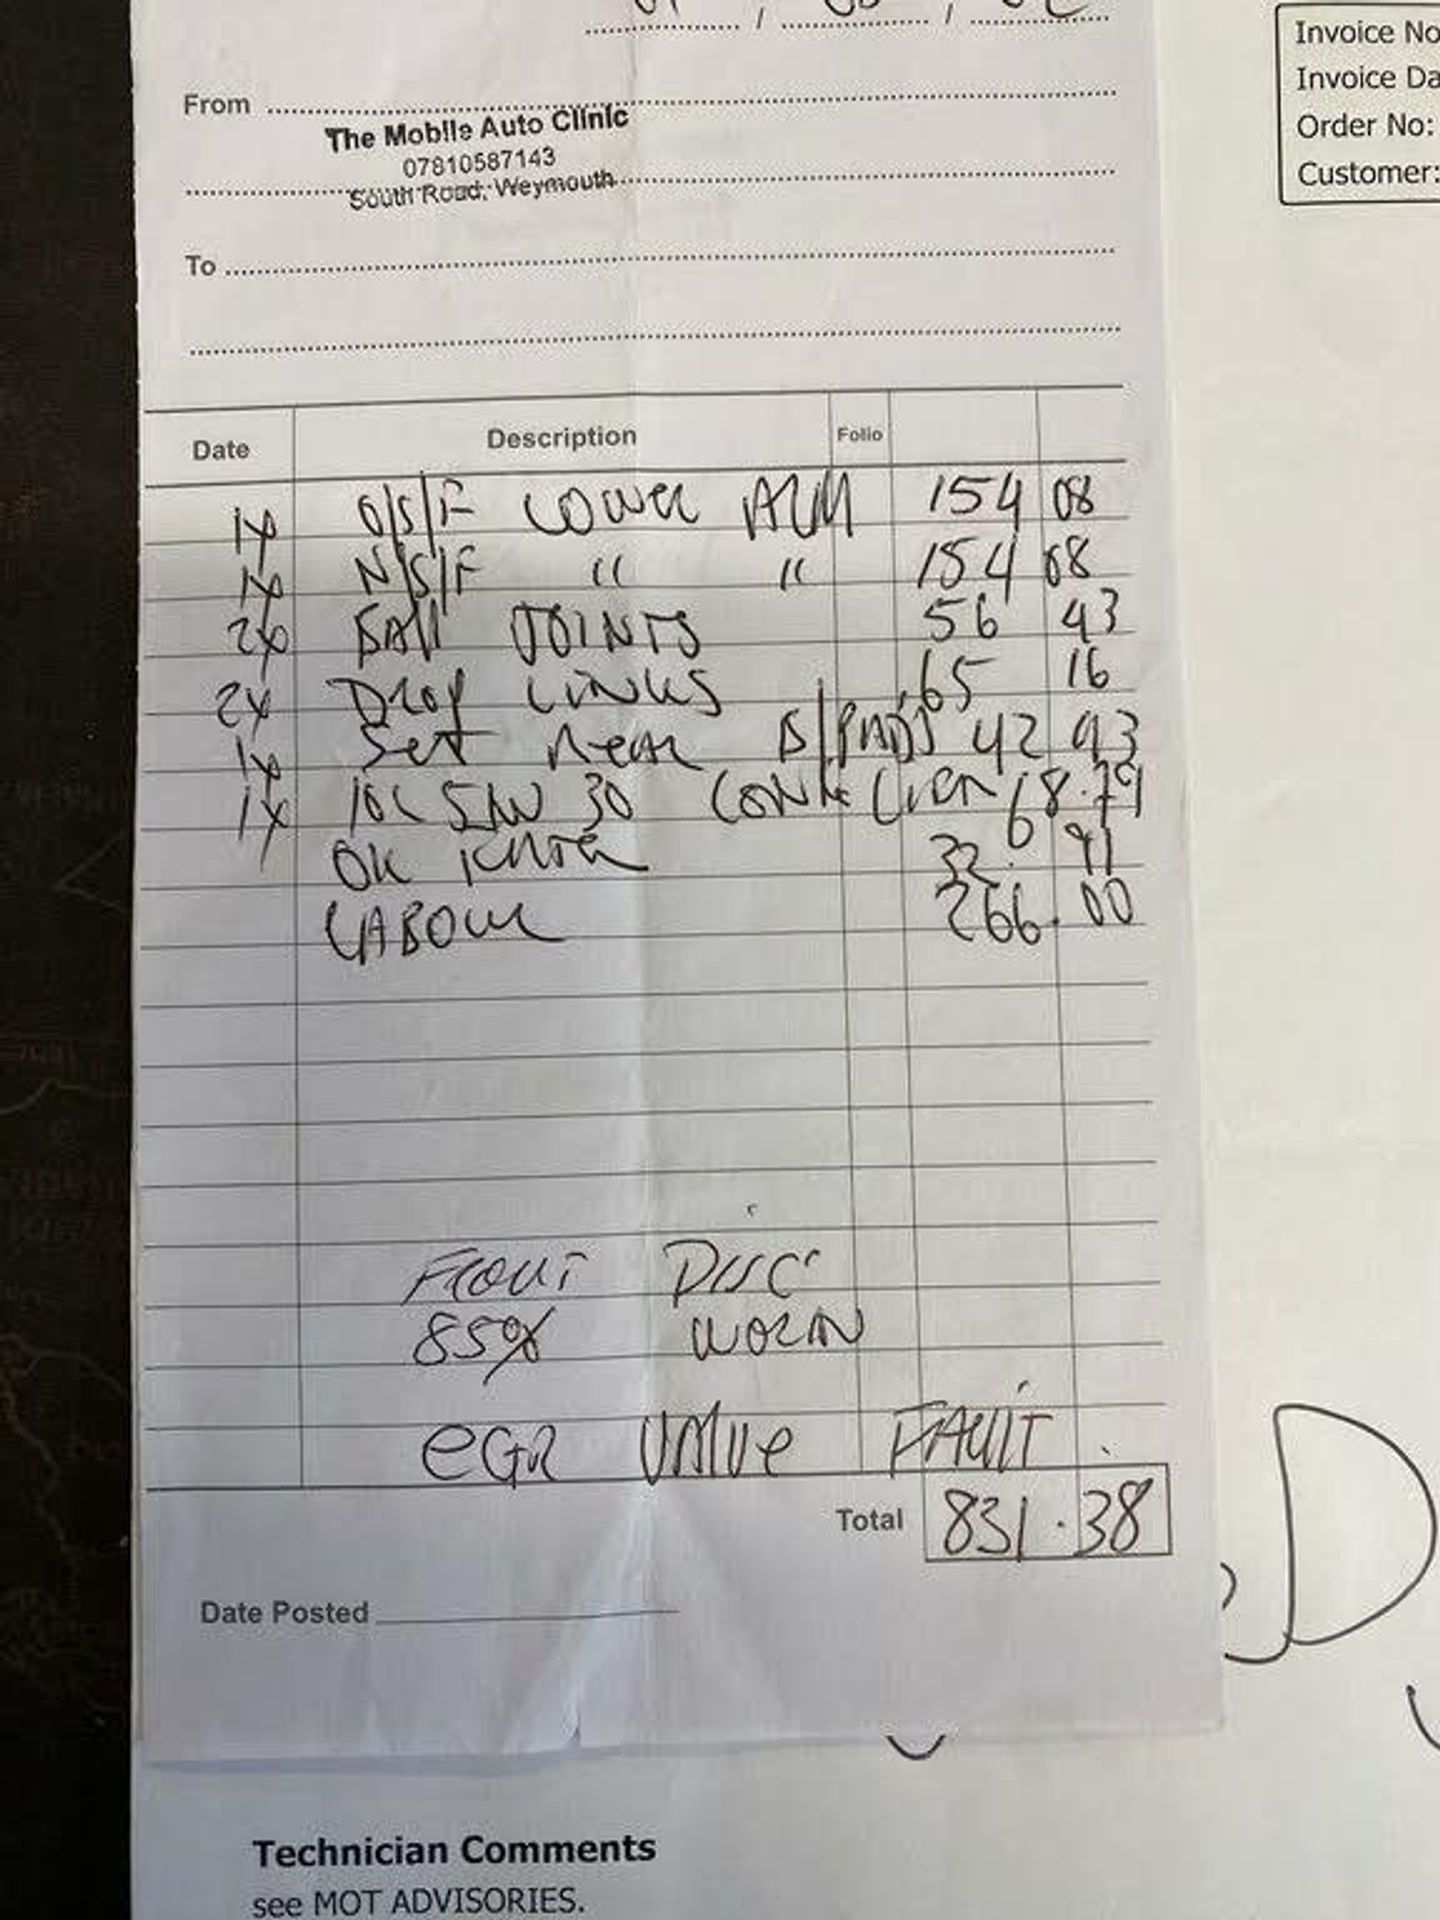 / /
Invoice No
Invoice Da
Order No:
Customer:
From
The Mobile Auto Clinic
07810587143
South Road, Weymouth
To
Date Description Folio
1x O/S/F LOWER ARM 154 08
1x N/S/F " " 154 08
2x BALL JOINTS 56 43
2x Drop LINKS 65 16
1x Set Rear B/PADS 42 93
1x 10L 5W 30 68.79
OIL 32. 91
LABOUR 266.00
FRONT DISC
85% WORN
EGR VALVE FAULT
Total 831.38
Date Posted
D
Technician Comments
see MOT ADVISORIES.